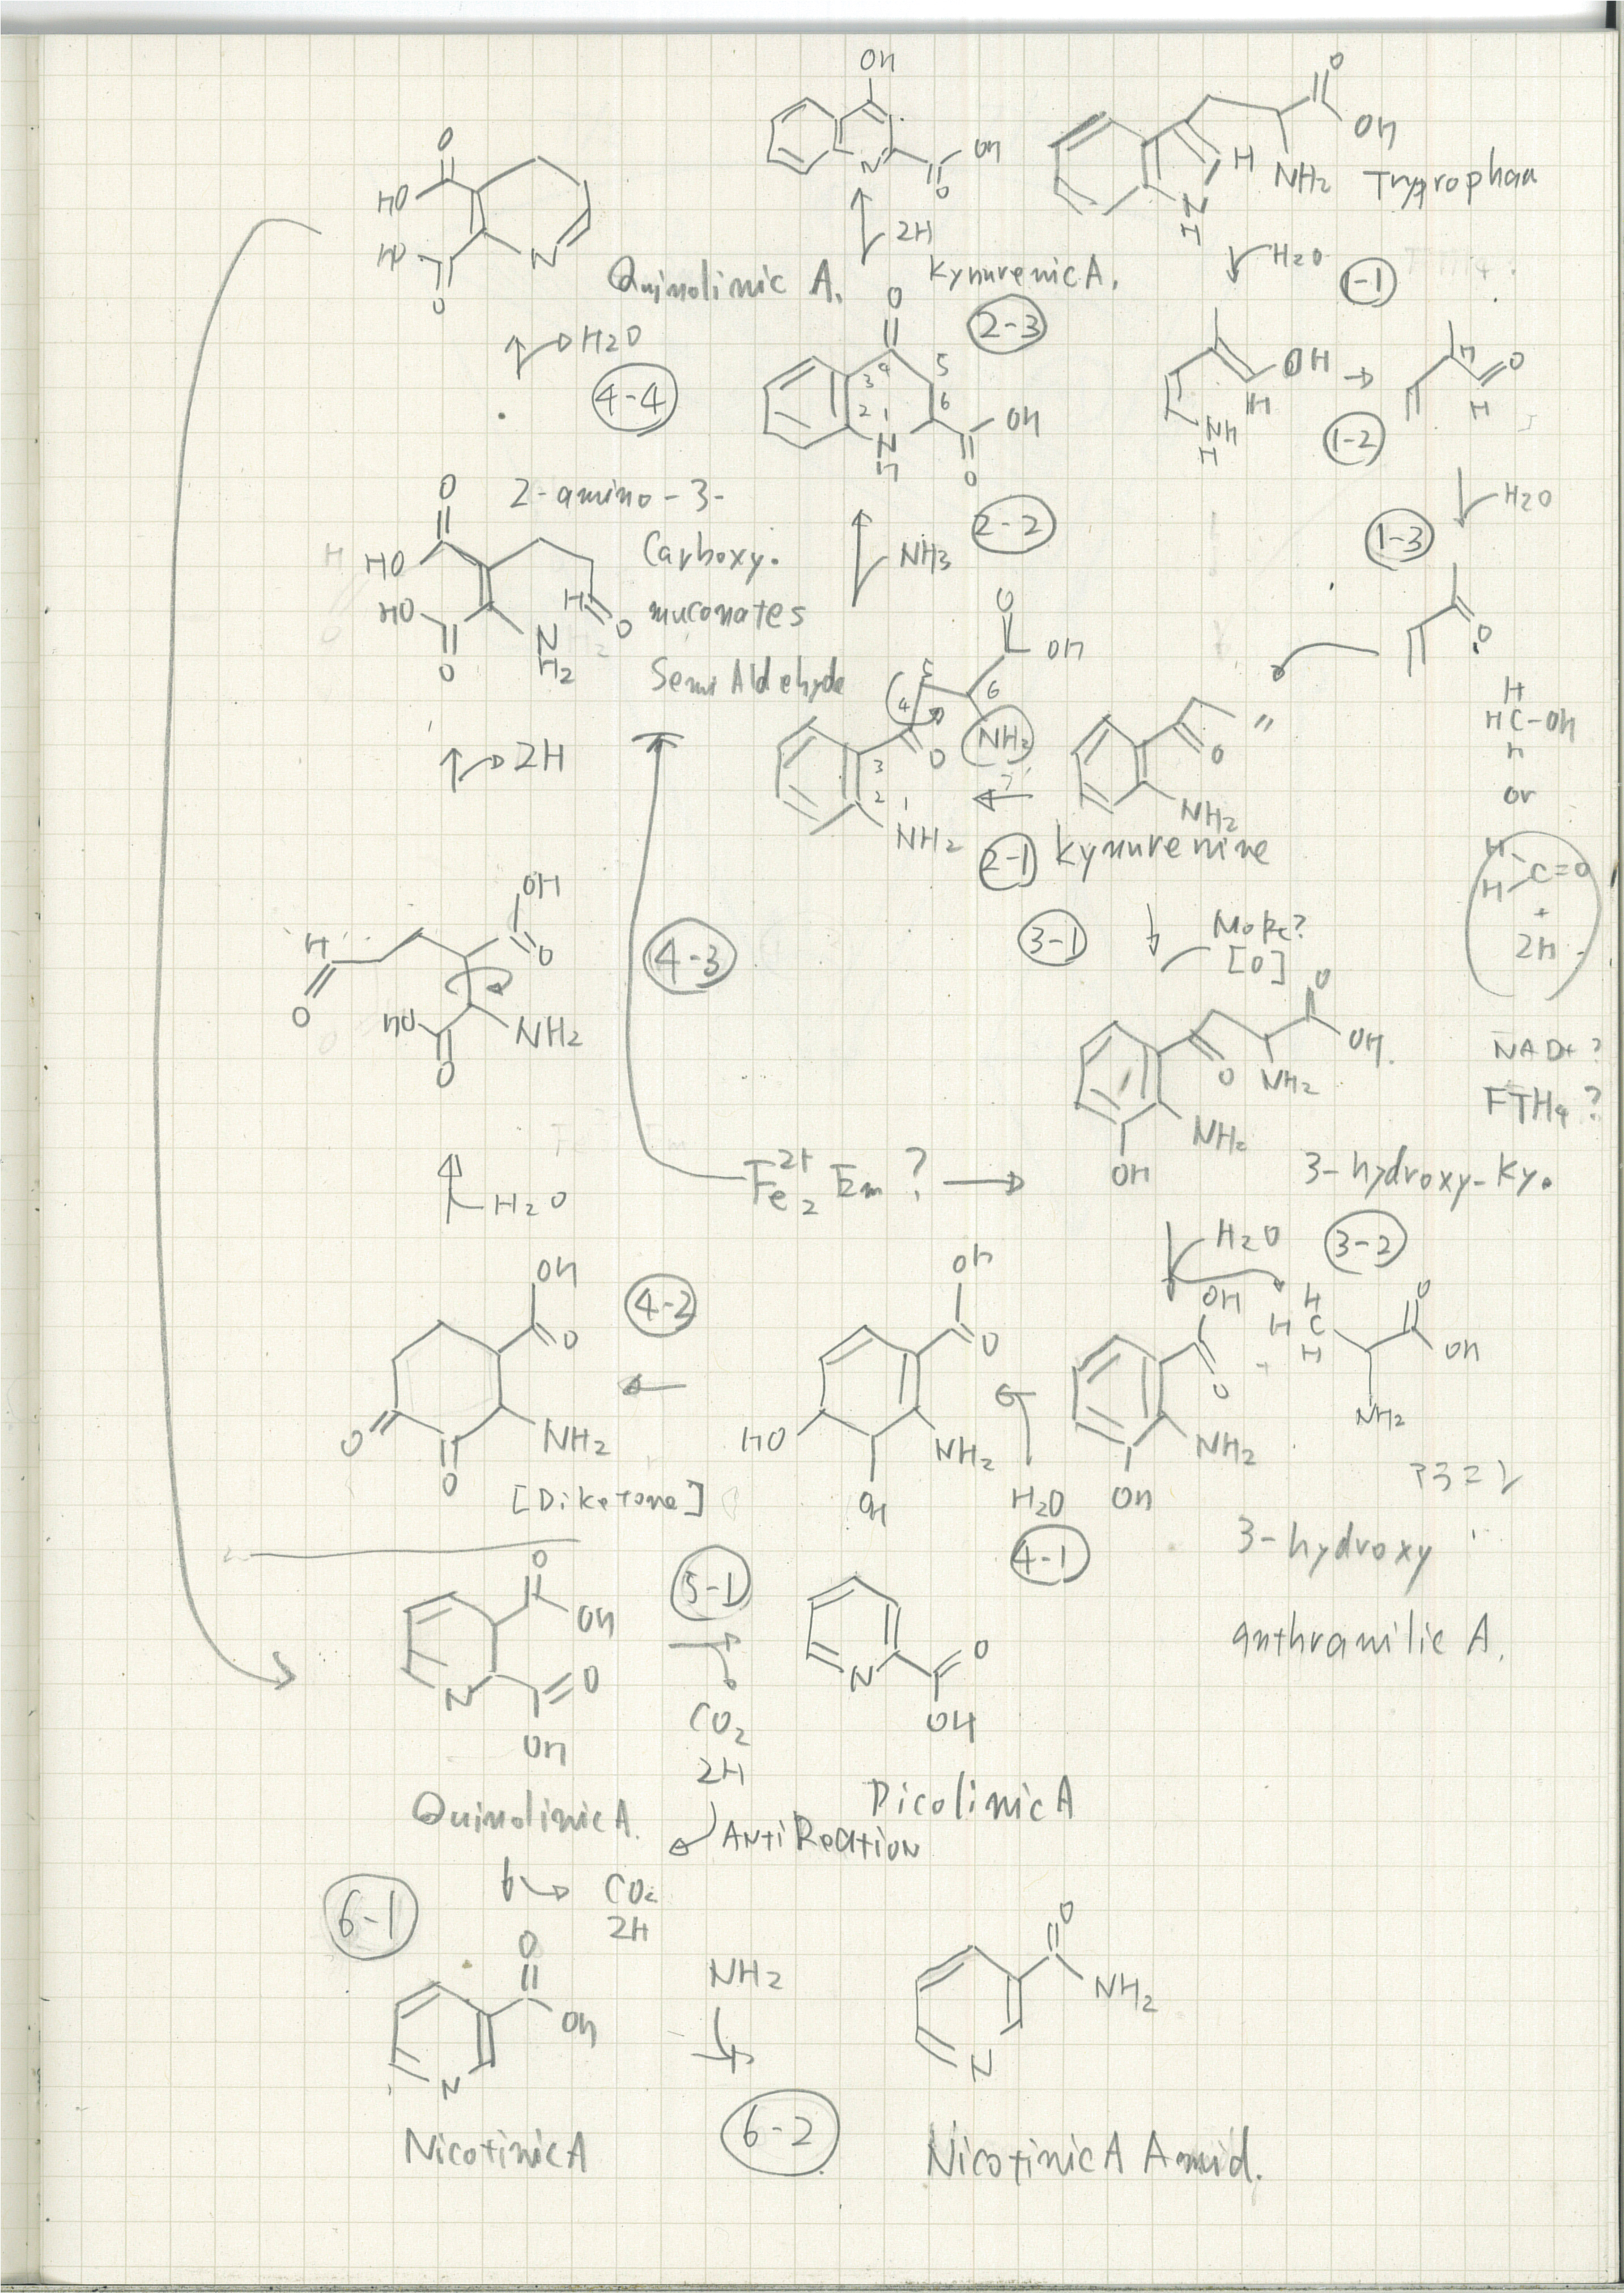 OH
O
OH
NH2
Tryprophan
H
N
H
N
OH
O
2H
Kynurenic A.
H2O
1-1
O
HO
HO
O
N
Quinolinic A.
H2O
4-4
2-3
O
3
4
5
6
2
1
N
H
OH
O
OH
H
NH
H
1-2
H
O
H
H2O
1-3
O
2-amino-3-
Carboxy.
muconates
Semi Aldehyde
O
HO
HO
O
N
H2
H
O
2-2
NH3
O
OH
5
4
6
O
NH2
3
2
1
NH2
2-1
?
O
"
NH2
Kynurenine
H
HC-OH
H
or
H
H
C=O
+
2H
NAD+?
FTH4?
2H
4-3
3-1
More?
[O]
O
OH
O
NH2
NH2
OH
3-hydroxy-Ky.
OH
H
O
O
HO
O
NH2
H2O
Fe2 2+ Em?
H2O
3-2
OH
O
NH2
OH
+
H
H C
H
O
OH
NH2
アラニン
3-hydroxy
anthranilic A.
H2O
4-1
OH
O
NH2
OH
HO
4-2
OH
O
O
O
NH2
[Diketone]
O
OH
N
O
OH
Quinolinic A.
5-1
CO2
2H
Anti Reation
N
O
OH
Picolinic A
6-1
CO2
2H
O
OH
N
Nicotinic A
NH2
6-2
O
NH2
N
Nicotinic A Amid.